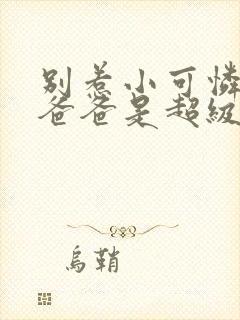 别惹小可憐
爸爸是超級
烏鞘